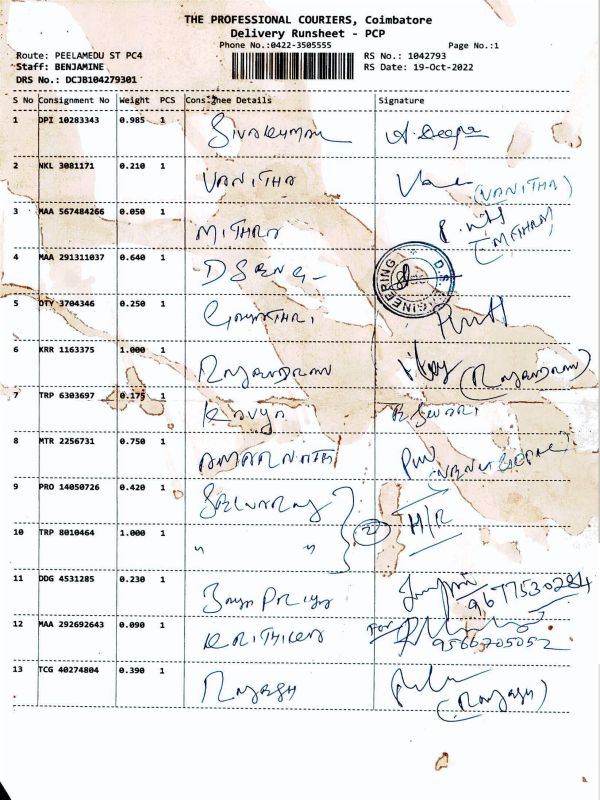 THE PROFESSIONAL COURIERS, Coimbatore
Delivery Runsheet - PCP
Phone No.:0422-3505555 Page No.:1
Route: PEELAMEDU ST PC4 RS No.: 1042793
Staff: BENJAMINE RS Date: 19-Oct-2022
DRS No.: DCJB104279301
S No Consignment No Weight PCS Consignee Details Signature
1 DPI 10283343 0.985 1 Sivakumar A. Deepa
2 NKL 3081171 0.210 1 VANITHA (VANITHA)
3 MAA 567484266 0.050 1 MITHRA
4 MAA 291311037 0.640 1 D S ENG-
5 DTY 3704346 0.250 1 GAYATHRI
6 KRR 1163375 1.000 1 RAJENDRAN (RAJENDRAN)
7 TRP 6303697 0.175 1 KAVYA ESWARI
8 MTR 2256731 0.750 1 AMARNATH (VENUGOPAL)
9 PRO 14050726 0.420 1 SELVARAJ H/R
10 TRP 8010464 1.000 1 " " 2
11 DDG 4531285 0.230 1 9677530284
12 MAA 292692643 0.090 1 For 9566705052
13 TCG 40274804 0.390 1 RAJESH (RAJESH)